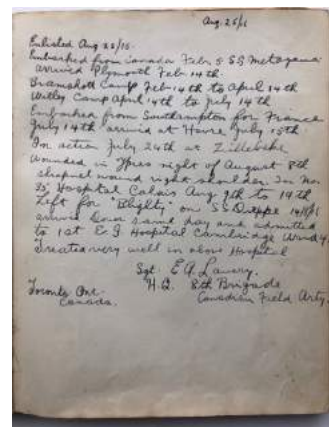 Aug. 26/16
Enlisted Aug 26/15.
Embarked from Canada Feb 5 SS Metagama
arrived Plymouth Feb 14th.
Bramshott Camp Feb 14th to April 14th
Witley Camp April 14th to July 14th
Embarked from Southampton for France
July 14th arrived at Havre July 15th.
In action July 24th at Zillebeke
Wounded in Ypres night of August 8th
shrapnel wound right shoulder. In No.
35 Hospital Calais Aug. 9th to 14th
Left for "Blighty" on SS Dieppe 14/8/16
arrived Dover same day and admitted
to 1st E.G. Hospital Cambridge Ward
Treated very well in above Hospital
Sgt. E. A. Lavery.
H.Q. 8th Brigade
Toronto Ont. Canadian Field Arty.
Canada.